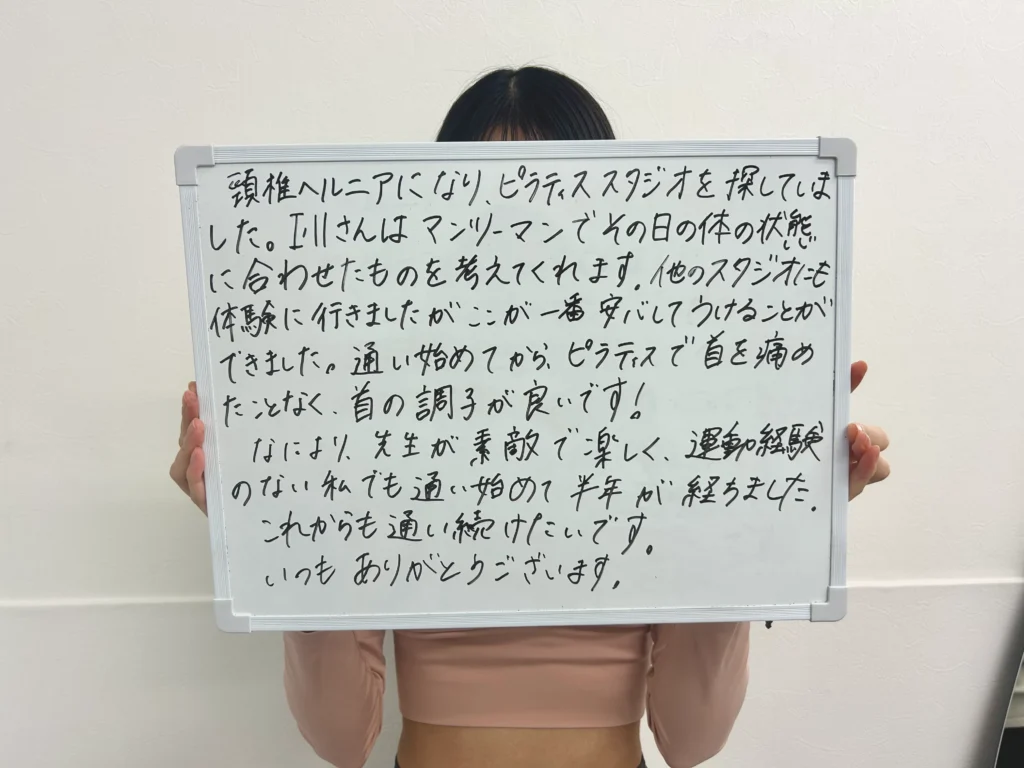 頸椎ヘルニアになり、ピラティススタジオを探していま
した。玉川さんは マンツーマンでその日の体の状態
に合わせたものを考えてくれます。他のスタジオにも
体験に行きましたがここが一番安心してうけることが
できました。通い始めてから、ピラティスで首を痛め
たことなく、首の調子が良いです!
なにより、先生が素敵で楽しく、運動経験
のない私でも通い始めて半年が経ちました。
これからも通い続けたいです。
いつもありがとうございます。